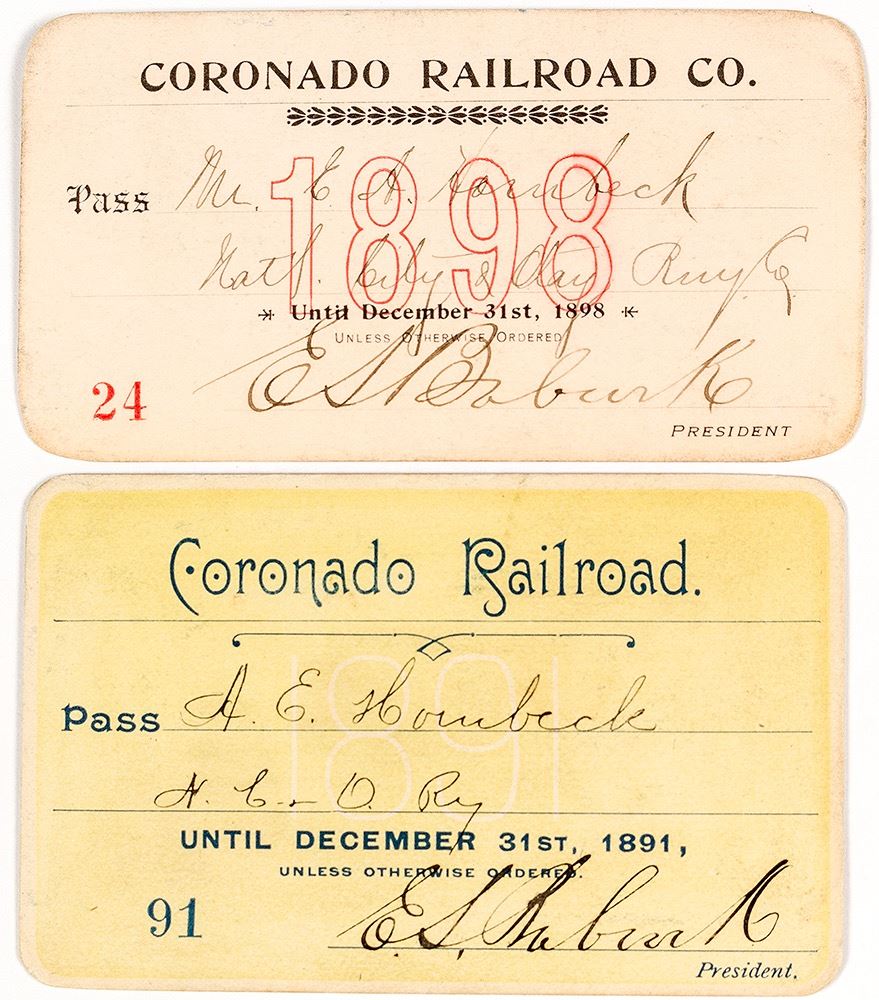 CORONADO RAILROAD CO.
1898
Pass Mr. E. A. Hornbeck
Natl. City & Otay Rwy. Co.
Until December 31st, 1898
UNLESS OTHERWISE ORDERED
E. S. Babcock
24
PRESIDENT
Coronado Railroad.
1891
Pass A. E. Hornbeck
N. C. & O. Ry
UNTIL DECEMBER 31ST, 1891,
UNLESS OTHERWISE ORDERED.
91
E. S. Babcock
President.